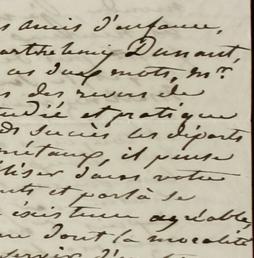 s amis d'enfance,
Barthelemy Dunant,
ces deux mots, Mr.
s des revers de
étudié et pratique
ds succès les départs
métaux, il pense
utiliser dans votre
nts et porté se
existence agréable,
me dont la moralité
servir d'